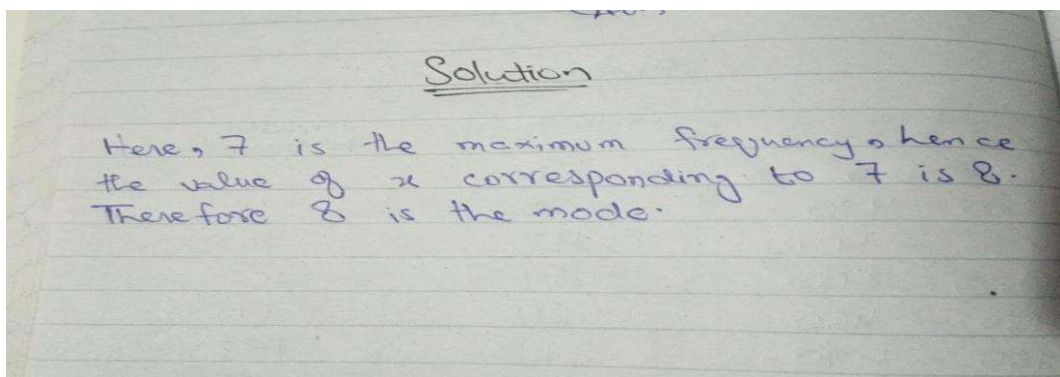 Solution
Here, 7 is the maximum frequency, hence
the value of x corresponding to 7 is 8.
Therefore 8 is the mode.